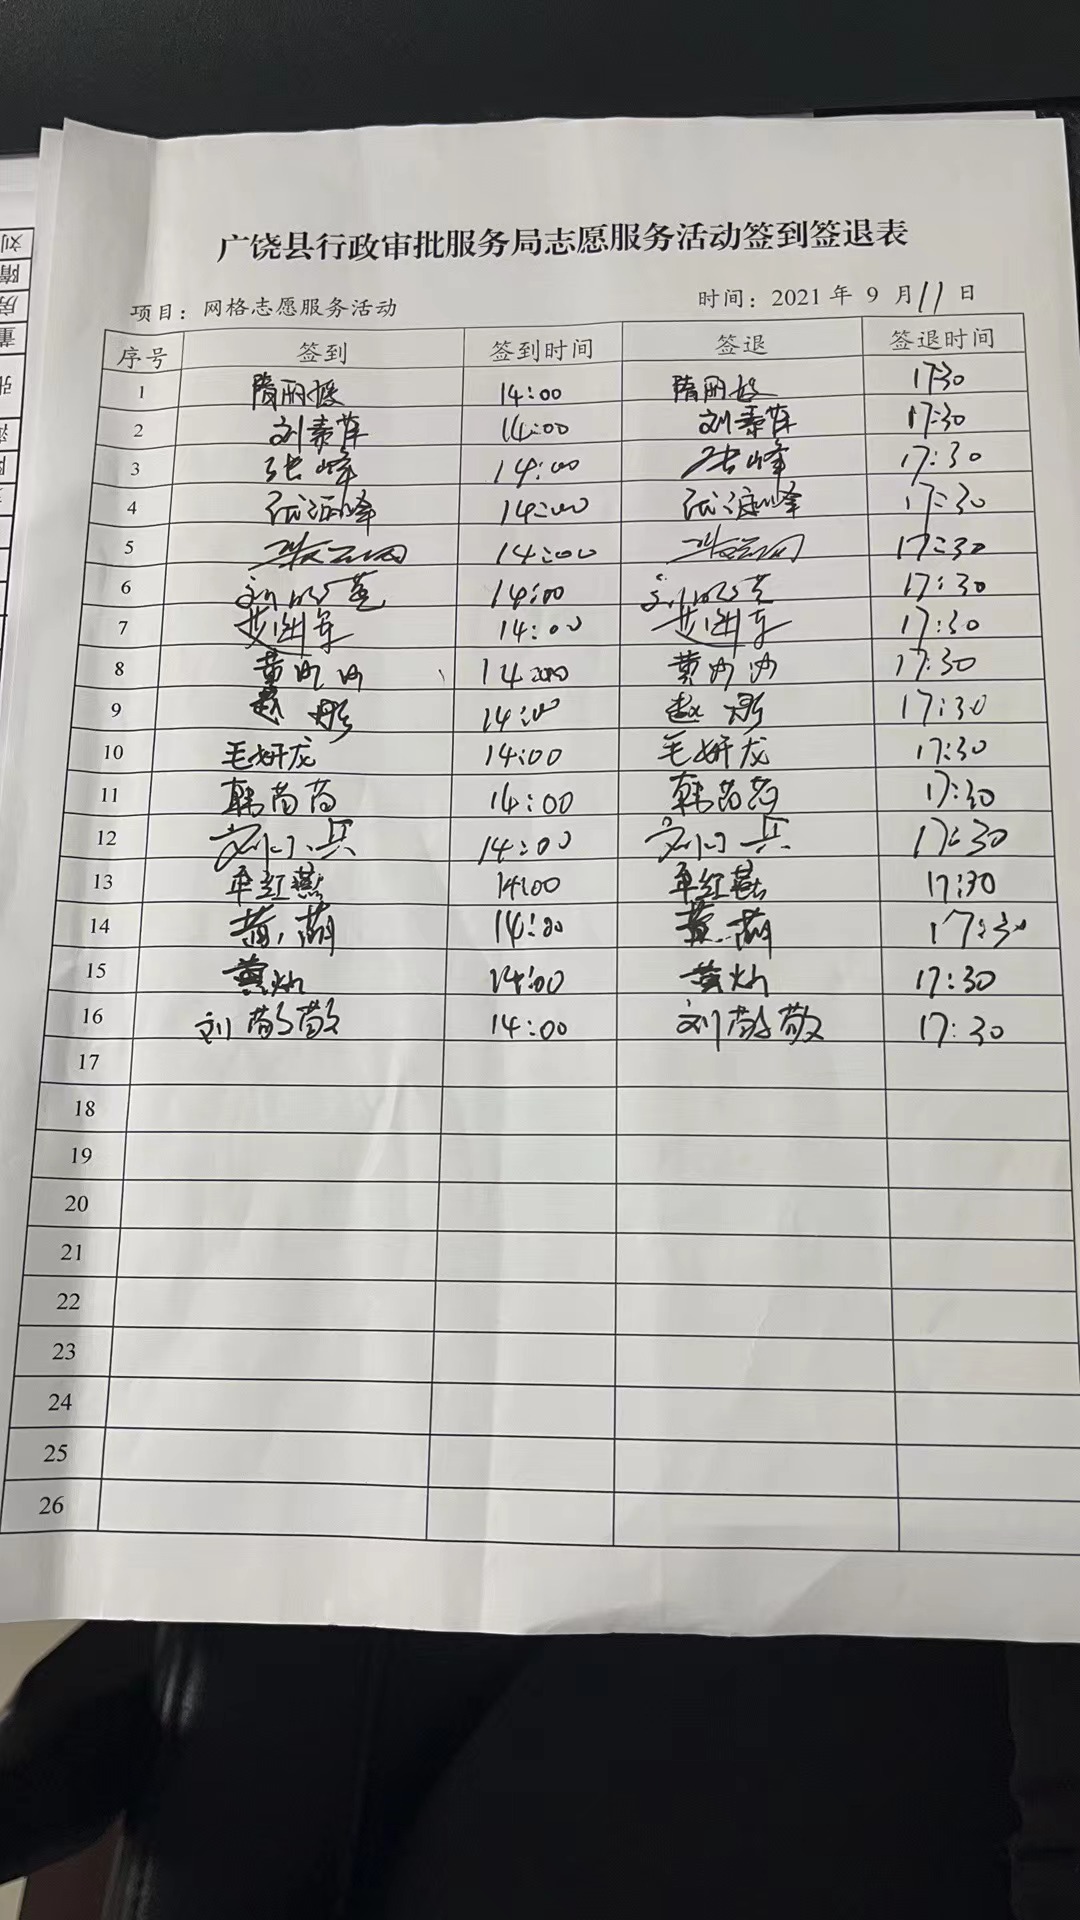 广饶县行政审批服务局志愿服务活动签到签退表
项目：网格志愿服务活动 时间：2021 年 9 月 11 日
序号 签到 签到时间 签退 签退时间
1 隋丽 14:00 隋丽 17:30
2 刘素萍 14:00 刘素萍 17:30
3 张峰 14:00 张峰 17:30
4 张 峰 14:00 张 峰 17:30
5 14:00 17:30
6 刘 14:00 刘 17:30
7 14:00 17:30
8 黄 14:00 黄 17:30
9 赵彤 14:00 赵彤 17:30
10 毛妍龙 14:00 毛妍龙 17:30
11 韩芮芮 14:00 韩芮芮 17:30
12 刘小兵 14:00 刘小兵 17:30
13 红燕 14:00 红燕 17:30
14 黄萌 14:00 黄萌 17:30
15 黄灿 14:00 黄灿 17:30
16 刘敬敬 14:00 刘敬敬 17:30
17
18
19
20
21
22
23
24
25
26